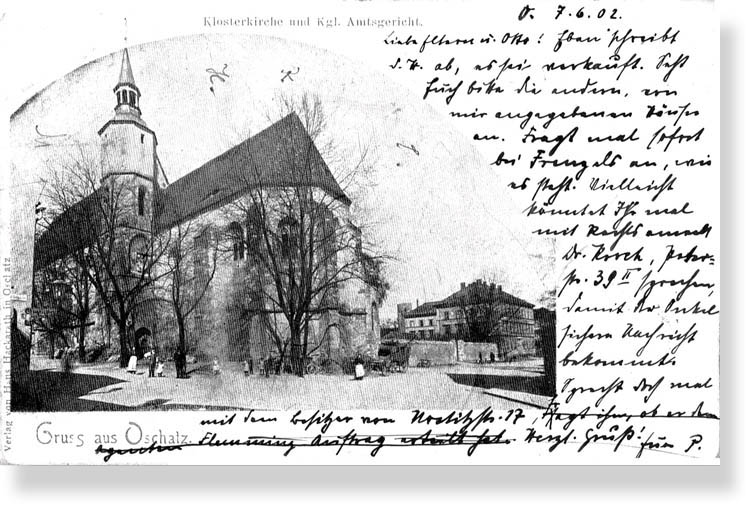 Klosterkirche und Kgl. Amtsgericht.
O. 7.6.02.
Liebe Eltern u. Otto! Eben schreibt
d. H. ab, es sei verkauft. Seht
Euch bitte die andern, von
mir angegebenen Häuser
an. Fragt mal sofort
bei Frenzels an, wie
es steht. Vielleicht
könntet Ihr mal
mit Rechtsanwalt
Dr. Korch, Peter-
str. 39 II sprechen,
damit der Onkel
sichere Nachricht
bekommt.
Sprecht doch mal
mit dem Besitzer von Nostitzstr. 17, fragt ihn, ob er dem
Gruss aus Oschatz.
agenten Flemming Auftrag erteilt hat. Herzl. Gruß! Euer P.
Verlag von Hans Heckarth in Oschatz